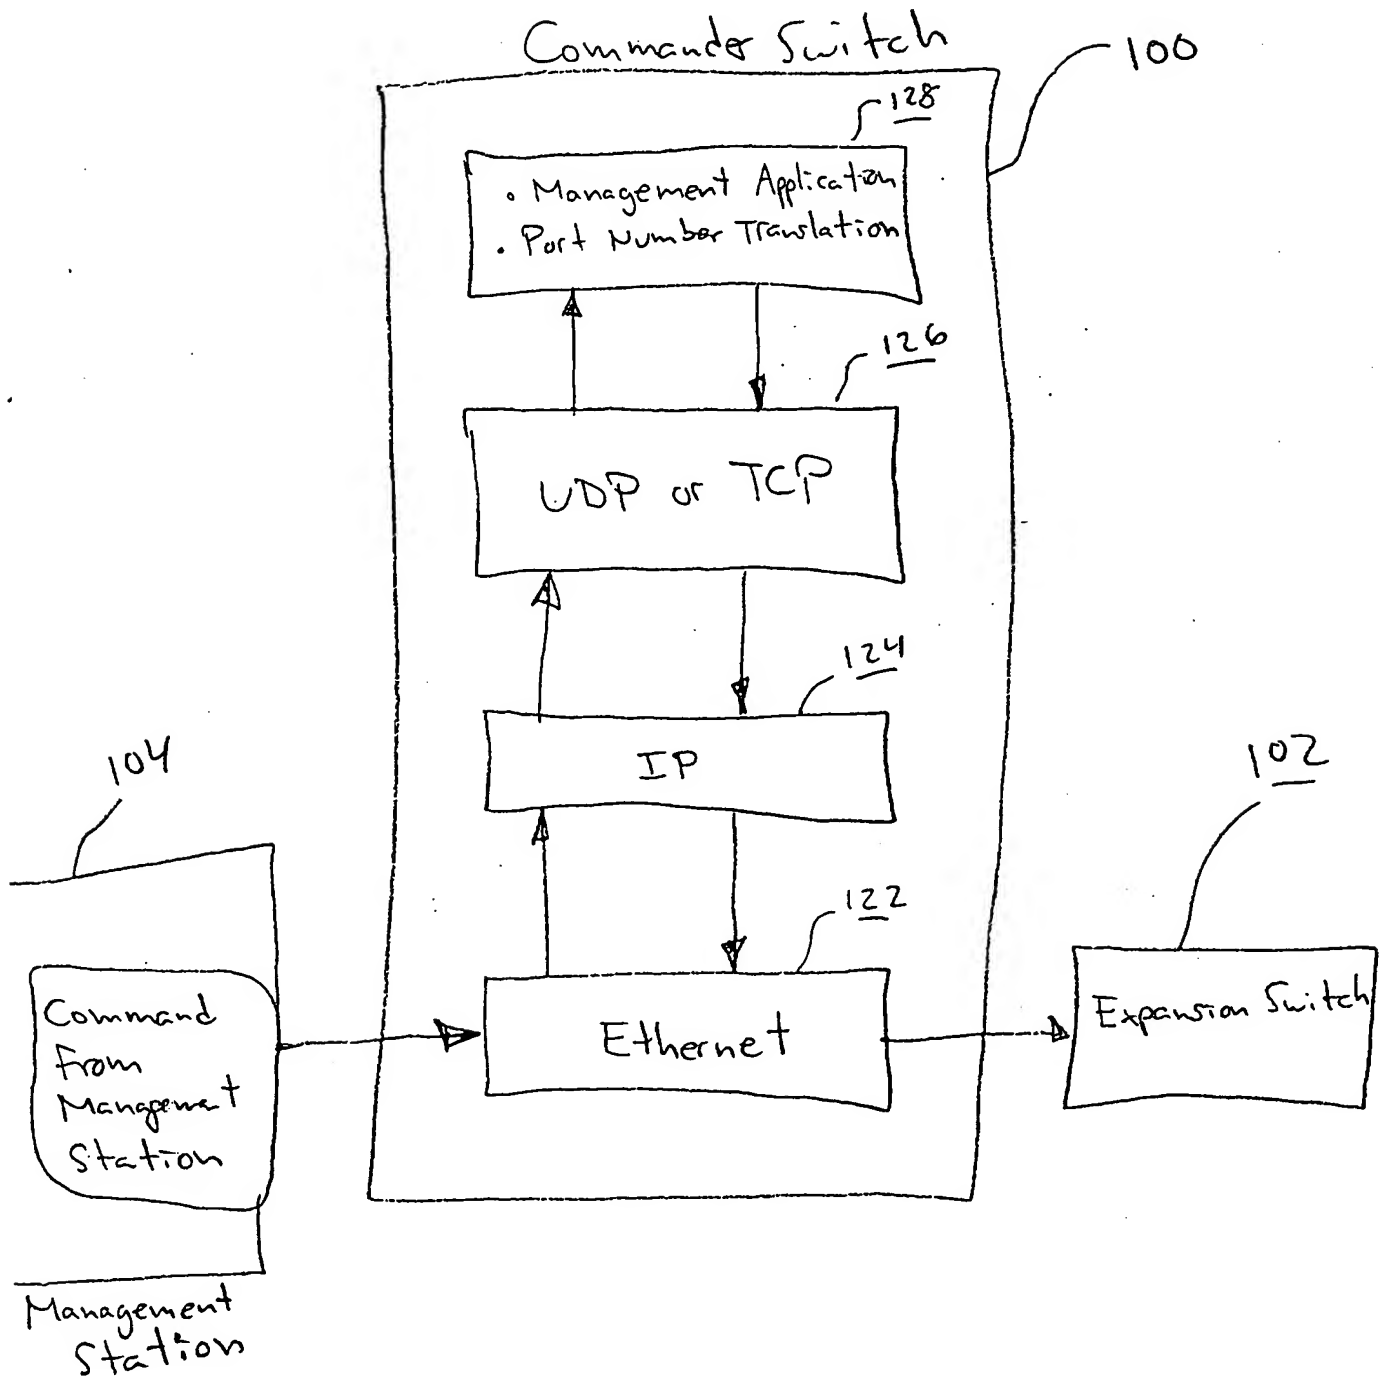 Commander Switch
100
128
• Management Application
• Port Number Translation
126
UDP or TCP
124
IP
104
102
122
Command
From
Management
Station
Ethernet
Expansion Switch
Management
Station